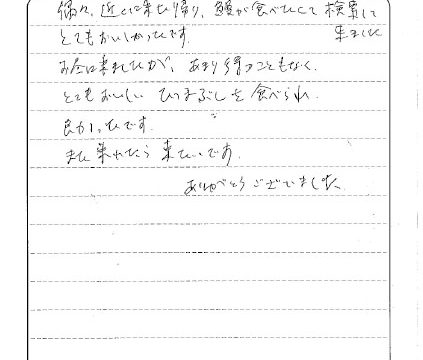 偶々、近くに来た帰り、鰻が食べたくて検索して
来ました
とてもおいしかったです。
お昼に来ましたが、あまり待つこともなく、
とてもおいしいひつまぶしを食べられ
良かったです。
また来れたら来たいです。
ありがとうございました